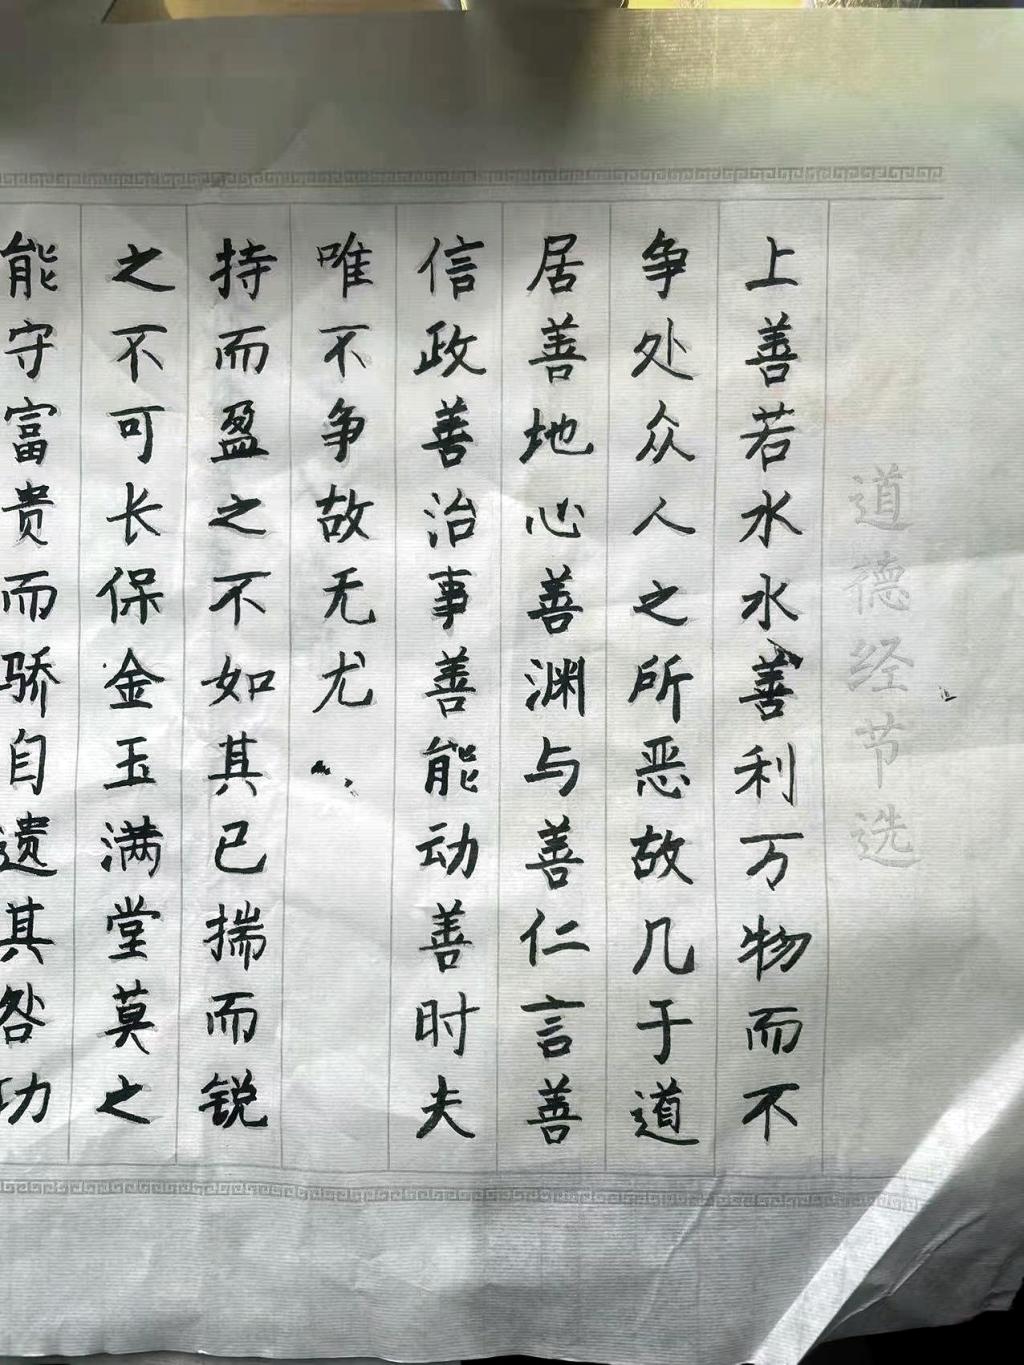 道德经节选
上善若水水善利万物而不
争处众人之所恶故几于道
居善地心善渊与善仁言善
信政善治事善能动善时夫
唯不争故无尤
持而盈之不如其已揣而锐
之不可长保金玉满堂莫之
能守富贵而骄自遗其咎功